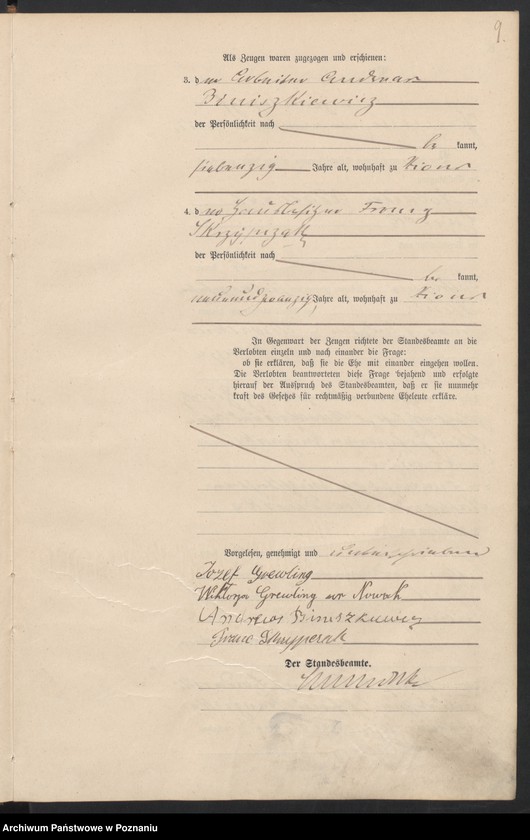 9.
Als Zeugen waren zugezogen und erschienen:
3. der Arbeiter Andreas
Biniszkiewicz
der Persönlichkeit nach
be kannt,
siebenzig Jahre alt, wohnhaft zu Xions
4. der Hausbesitzer Franz
Skrzypczak
der Persönlichkeit nach
be kannt,
neunundzwanzig Jahre alt, wohnhaft zu Xions
In Gegenwart der Zeugen richtete der Standesbeamte an die
Verlobten einzeln und nach einander die Frage:
ob sie erklären, daß sie die Ehe mit einander eingehen wollen.
Die Verlobten beantworteten diese Frage bejahend und erfolgte
hierauf der Ausspruch des Standesbeamten, daß er sie nunmehr
kraft des Gesetzes für rechtmäßig verbundene Eheleute erkläre.
Vorgelesen, genehmigt und unterschrieben
Jozef Grewling
Wiktorja Grewling Nowak
Andreas Biniszkiewicz
Franc Skrzypczak
Der Standesbeamte.
Archiwum Państwowe w Poznaniu